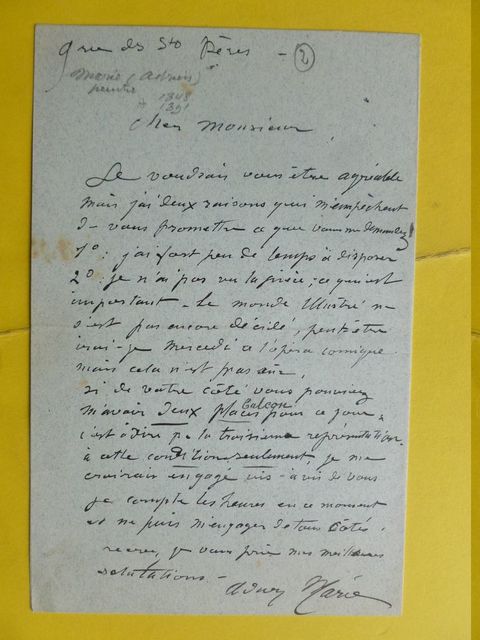 9 rue des Sts Pères - 2
Marie (Adrien)
peintre
1848
1891
Cher Monsieur,
Je voudrais vous être agréable
mais j'ai deux raisons qui m'empêchent
de vous promettre ce que vous me demandez
1º : j'ai fort peu de temps à disposer
2º je n'ai pas vu la pièce, ce qui est
important - Le monde Illustré ne
s'est pas encore décidé, peut être
irai-je mercredi à l'opéra comique
mais cela n'est pas sûr,
si de votre côté vous pouviez
m'avoir deux places balcon pour ce jour,
c'est à dire pr la troisième représentation
à cette condition seulement, je me
croirais engagé vis-à-vis de vous
je compte les heures en ce moment
et ne puis m'engager de tous côtés.
recevez, je vous prie mes meilleures
salutations -
Adrien Marie